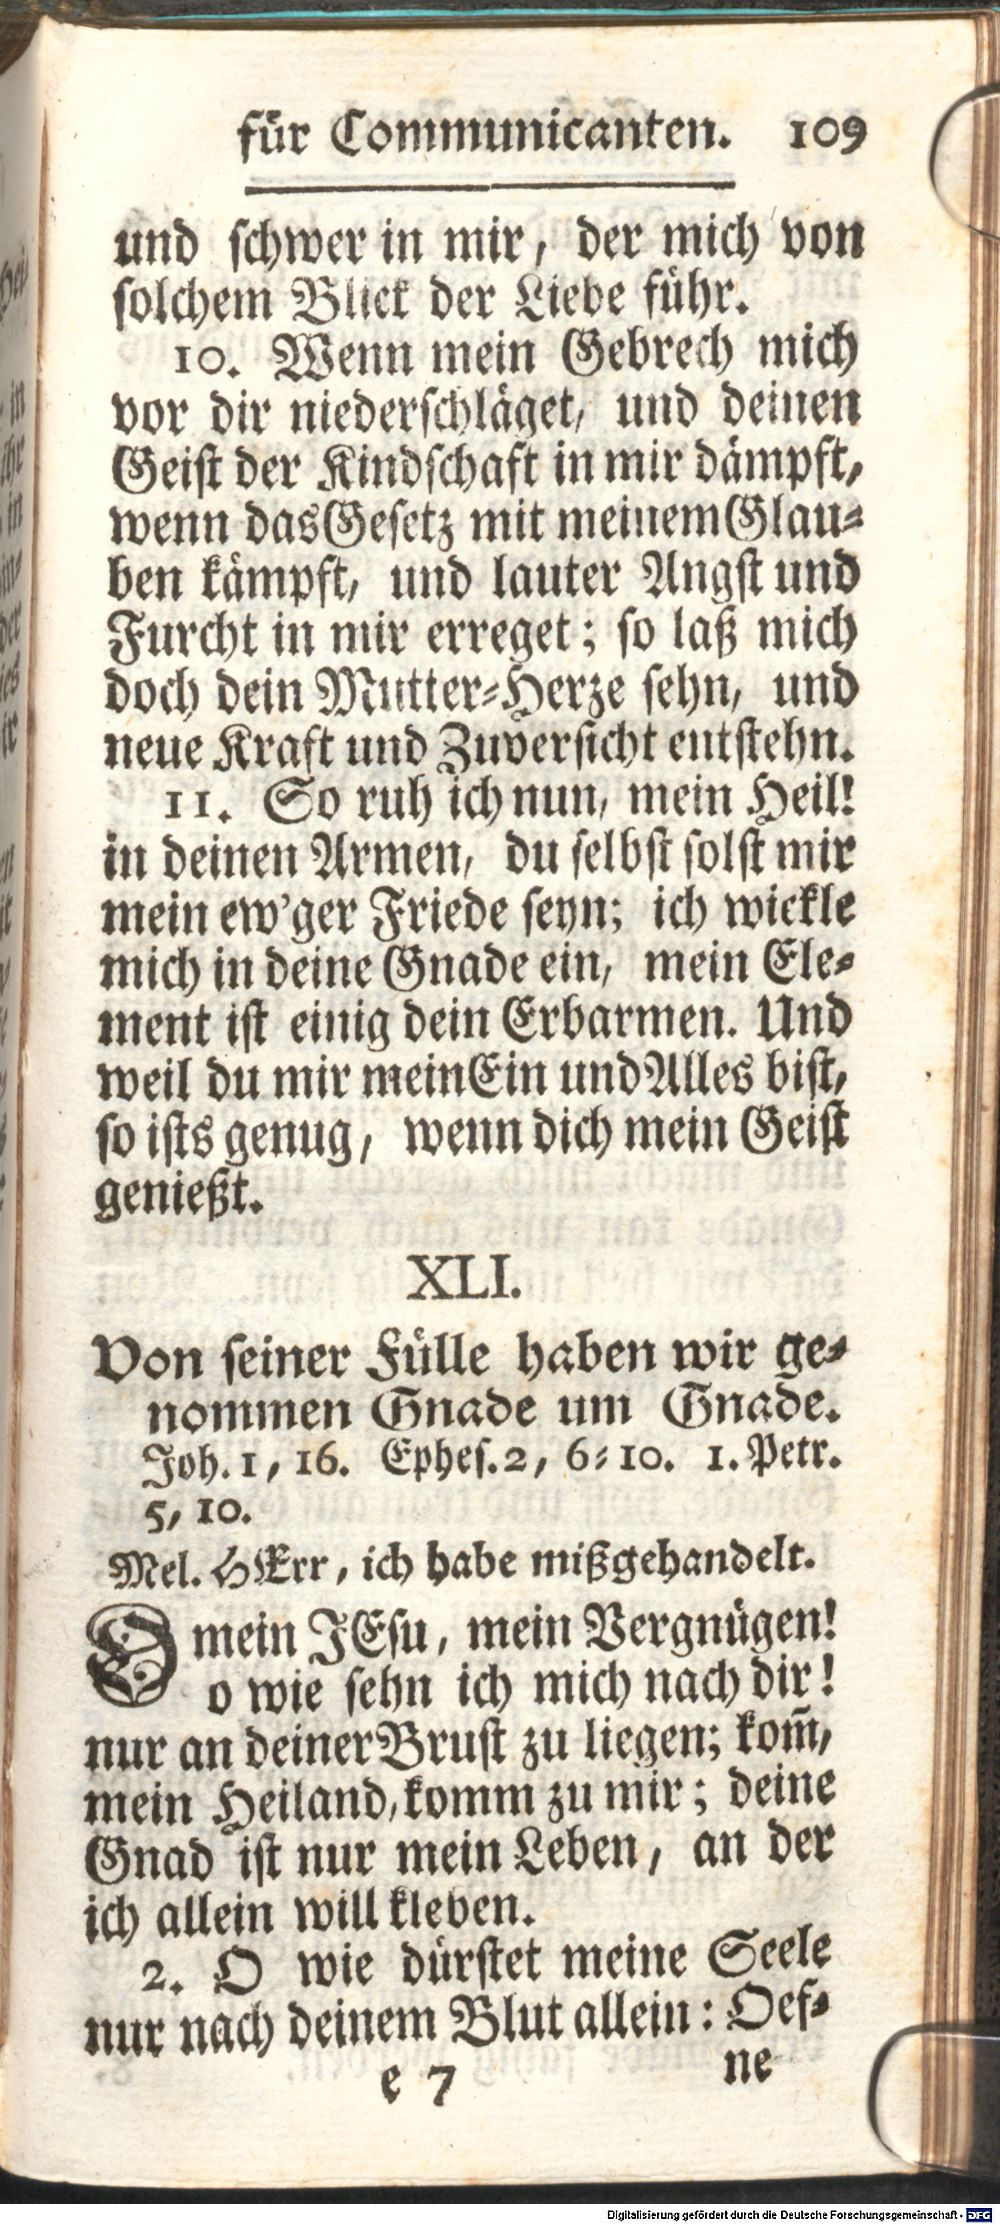 für Communicanten. 109
und schwer in mir, der mich von
solchem Blick der Liebe führ.
10. Wenn mein Gebrech mich
vor dir niederschläget, und deinen
Geist der Kindschaft in mir dämpft,
wenn das Gesetz mit meinem Glau-
ben kämpft, und lauter Angst und
Furcht in mir erreget; so laß mich
doch dein Mutter-Herze sehn, und
neue Kraft und Zuversicht entstehn.
11. So ruh ich nun, mein Heil!
in deinen Armen, du selbst solst mir
mein ew'ger Friede seyn; ich wickle
mich in deine Gnade ein, mein Ele-
ment ist einig dein Erbarmen. Und
weil du mir mein Ein und Alles bist,
so ists genug, wenn dich mein Geist
genießt.
XLI.
Von seiner Fülle haben wir ge-
nommen Gnade um Gnade.
Joh. 1, 16. Ephes. 2, 6-10. 1. Petr.
5, 10.
Mel. HErr, ich habe mißgehandelt.
O mein JEsu, mein Vergnügen!
o wie sehn ich mich nach dir!
nur an deiner Brust zu liegen; kom̃,
mein Heiland, komm zu mir; deine
Gnad ist nur mein Leben, an der
ich allein will kleben.
2. O wie dürstet meine Seele
nur nach deinem Blut allein: Oef-
e 7 ne
Digitalisierung gefördert durch die Deutsche Forschungsgemeinschaft - DFG